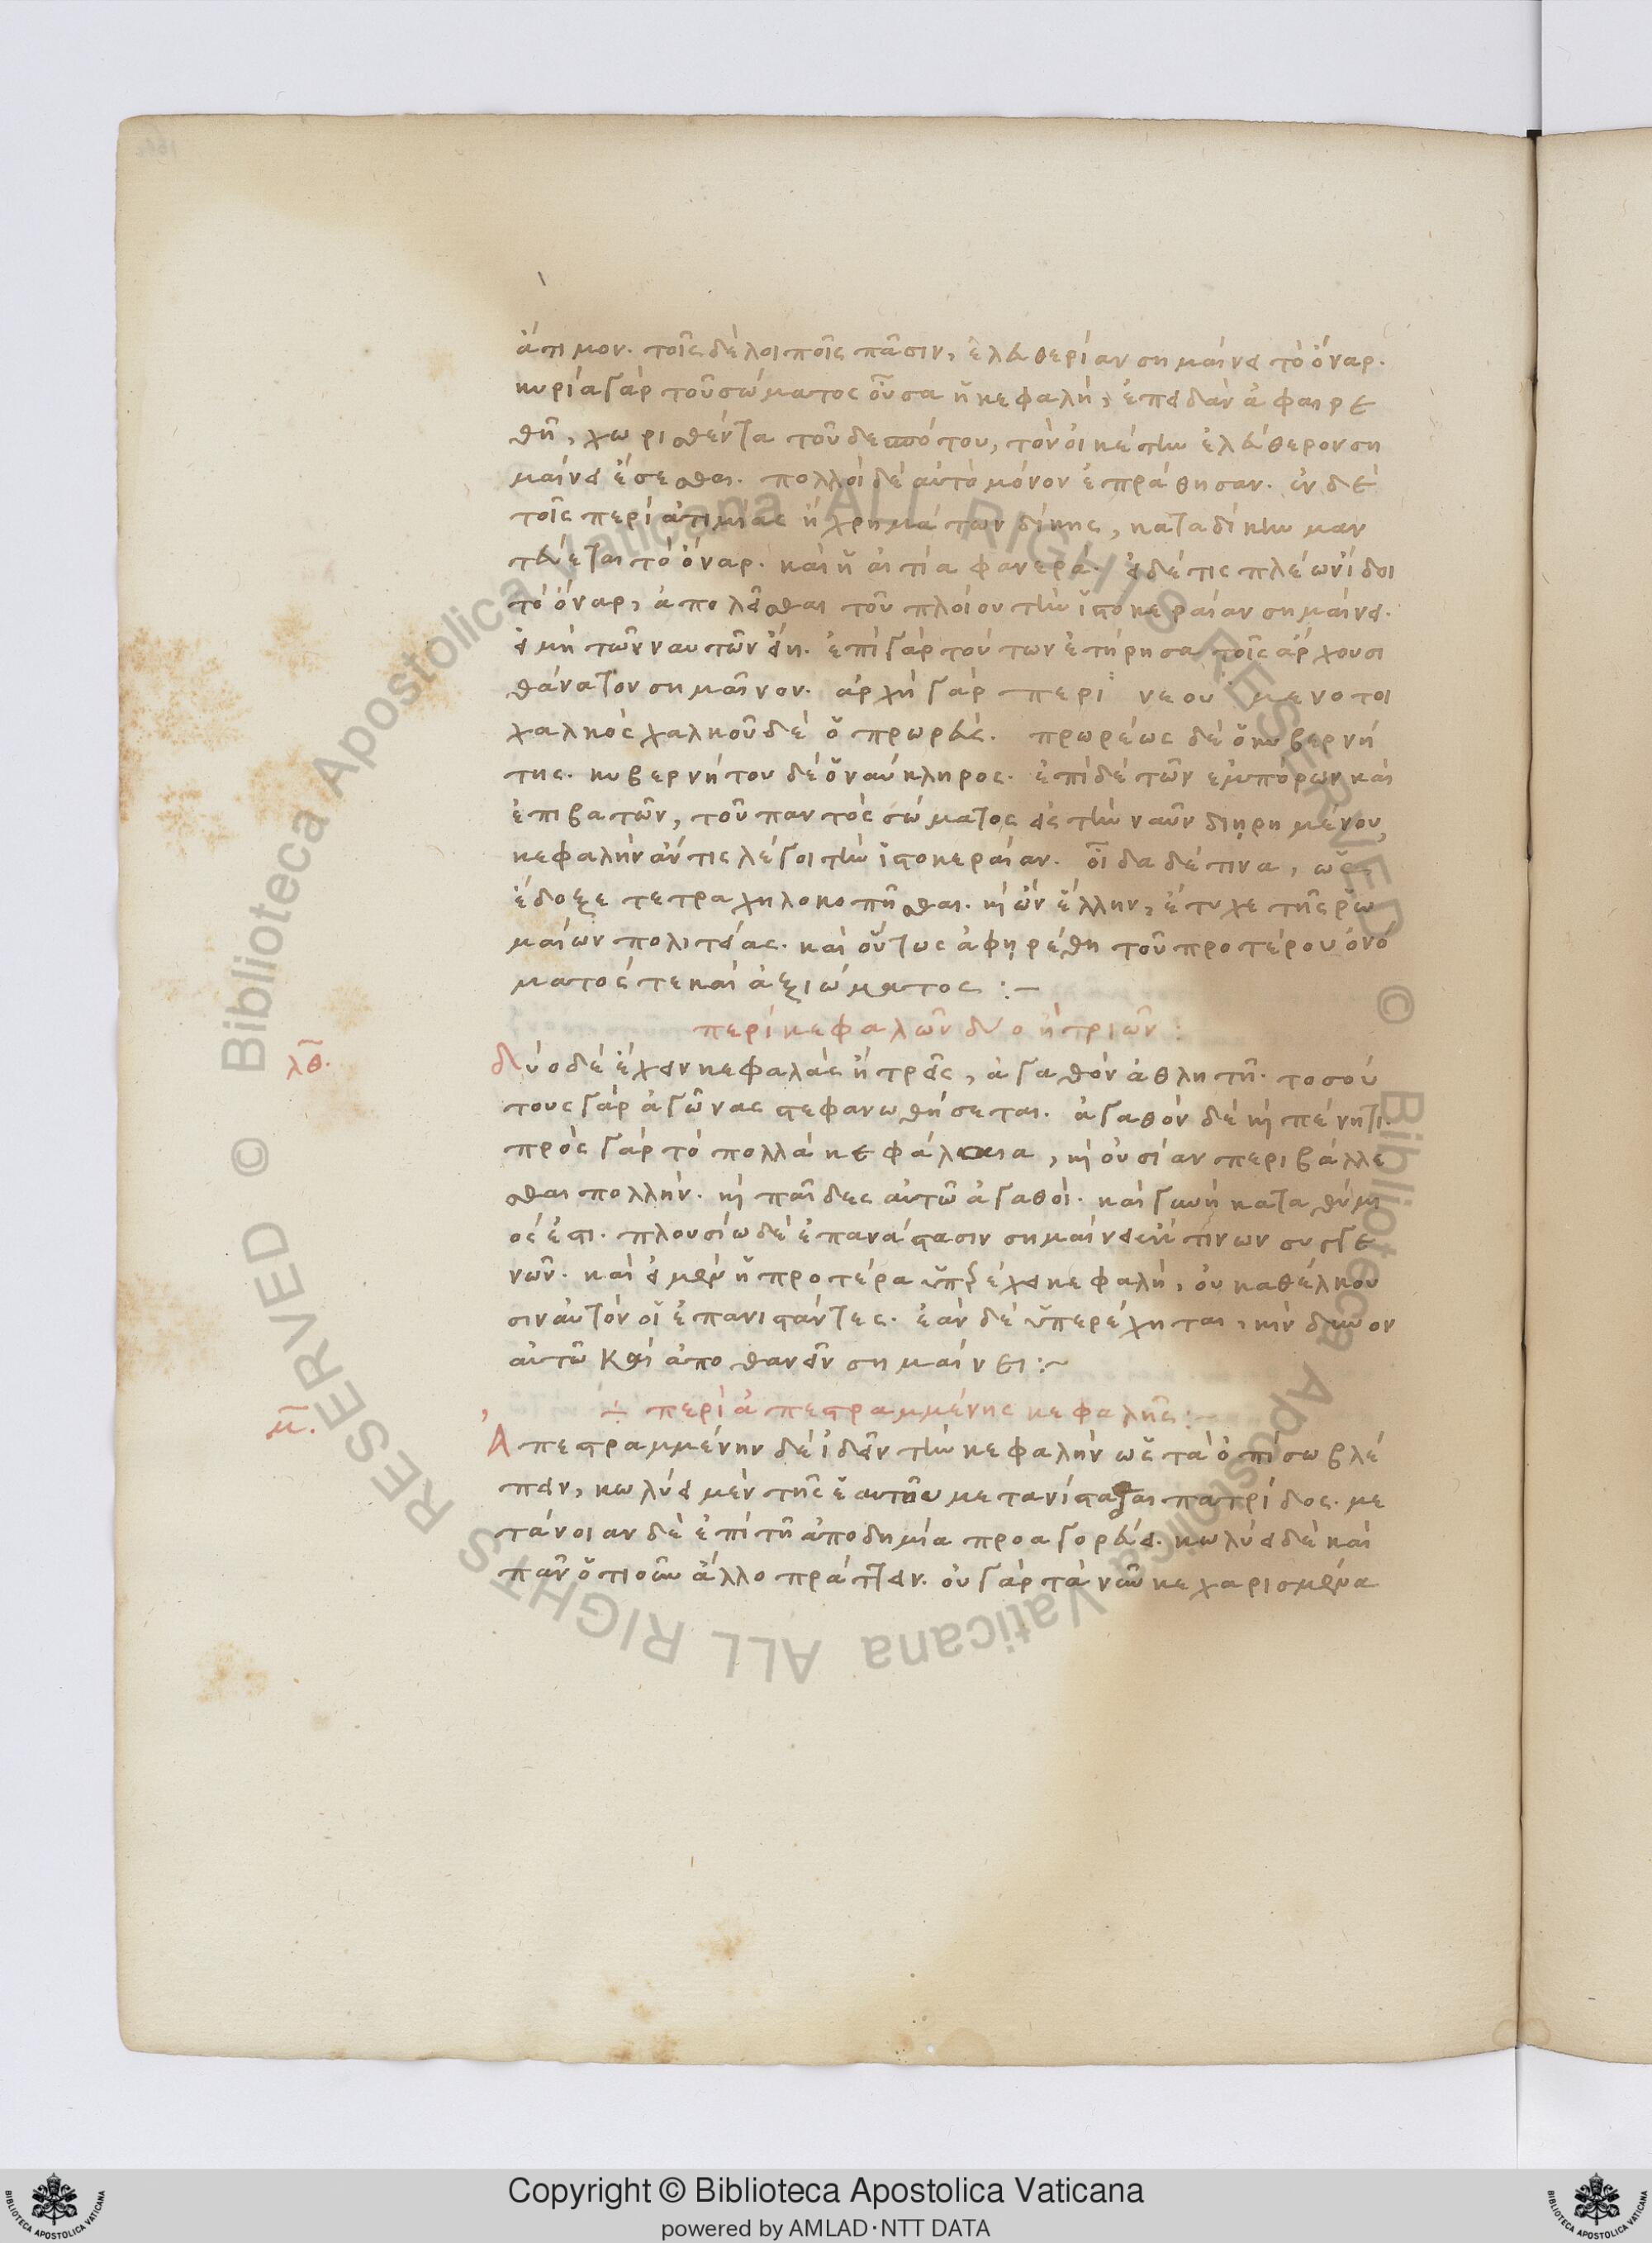 ἄτιμον. τοῖς δὲ λοιποῖς πᾶσιν, ἐλευθερίαν σημαίνει τὸ ὄναρ.
κυρία γὰρ τοῦ σώματος οὖσα ἡ κεφαλὴ, ἐπειδὰν ἀφαιρε
θῆ, χωρισθέντα τοῦ δεσπότου, τὸν οἰκέτην ἐλεύθερον ση
μαίνει ἔσεσθαι. πολλοὶ δὲ αὐτὸ μόνον ἐπράθησαν. ἐν δὲ
τοῖς περὶ ἀτιμίας ἢ χρημάτων δίκης, καταδίκην μαν
τεύεται τὸ ὄναρ. καὶ ἡ αἰτία φανερά. εἰ δέ τις πλέων ἴδοι
τὸ ὄναρ, ἀπολεῖσθαι τοῦ πλοίου τὴν ἱστοκεραίαν σημαίνει.
εἰ μὴ τῶν ναυτῶν εἴη. ἐπὶ γὰρ τούτων ἐτήρησα τοῖς ἄρχουσι
θάνατον σημαῖνον. ἀρχὴ γὰρ περι νεου μενοτοι
χαλκὸς χαλκοῦ δὲ ὁ πρωρεύς. πρωρέως δὲ ὁ κυβερνή
της. κυβερνήτου δὲ ὁ ναύκληρος. ἐπὶ δὲ τῶν ἐμπόρων καὶ
ἐπιβατῶν, τοῦ παντὸς σώματος εἰς τὴν ναῦν διῃρημένου,
κεφαλὴν ἄν τις λέγοι τὴν ἱστοκεραίαν. οἶδα δέ τινα, ὡς
ἔδοξε τετραχηλοκοπῆσθαι. καὶ ὢν ἕλλην, ἔτυχε τῆς ῥω
μαίων πολιτείας. καὶ οὕτως ἀφῃρέθη τοῦ προτέρου ὀνό
ματός τε καὶ ἀξιώματος :-
περὶ κεφαλῶν δύο ἢ τριῶν :
λθ. δύο δὲ ἔχειν κεφαλὰς ἢ τρεῖς, ἀγαθὸν ἀθλητῆ. τοσού
τους γὰρ ἀγῶνας στεφανωθήσεται. ἀγαθὸν δὲ καὶ πένητι.
πρὸς γὰρ τὸ πολλὰ κεφάλαια, καὶ οὐσίαν περιβάλλε
σθαι πολλήν. καὶ παῖδες αὐτῶ ἀγαθοί. καὶ γυνὴ καταθύμι
ός ἐστι. πλουσίω δὲ ἐπανάστασιν σημαίνει ἔκ τινων συγγε
νῶν. καὶ εἰ μὲν ἡ προτέρα ὑπερέχει κεφαλὴ, οὐ καθέλκου
σιν αὐτὸν οἱ ἐπανιστάντες. ἐὰν δὲ ὑπερέχηται, κίνδυνον
αὐτῶ καὶ ἀποθανεῖν σημαίνει :~
÷ περὶ ἀπεστραμμένης κεφαλῆς :
μ. Ἀπεστραμμένην δὲ ἰδεῖν τὴν κεφαλὴν ὡς τὰ ὀπίσω βλέ
πειν, κωλύει μὲν τῆς ἑαυτῆς μετανίστασθαι πατρίδος. με
τάνοιαν δὲ ἐπὶ τῆ ἀποδημία προαγορεύει. κωλύει δὲ καὶ
πᾶν ὁτιοῦν ἄλλο πράττειν. οὐ γὰρ τὰ νῦν κεχαρισμένα
Copyright © Biblioteca Apostolica Vaticana
powered by AMLAD·NTT DATA